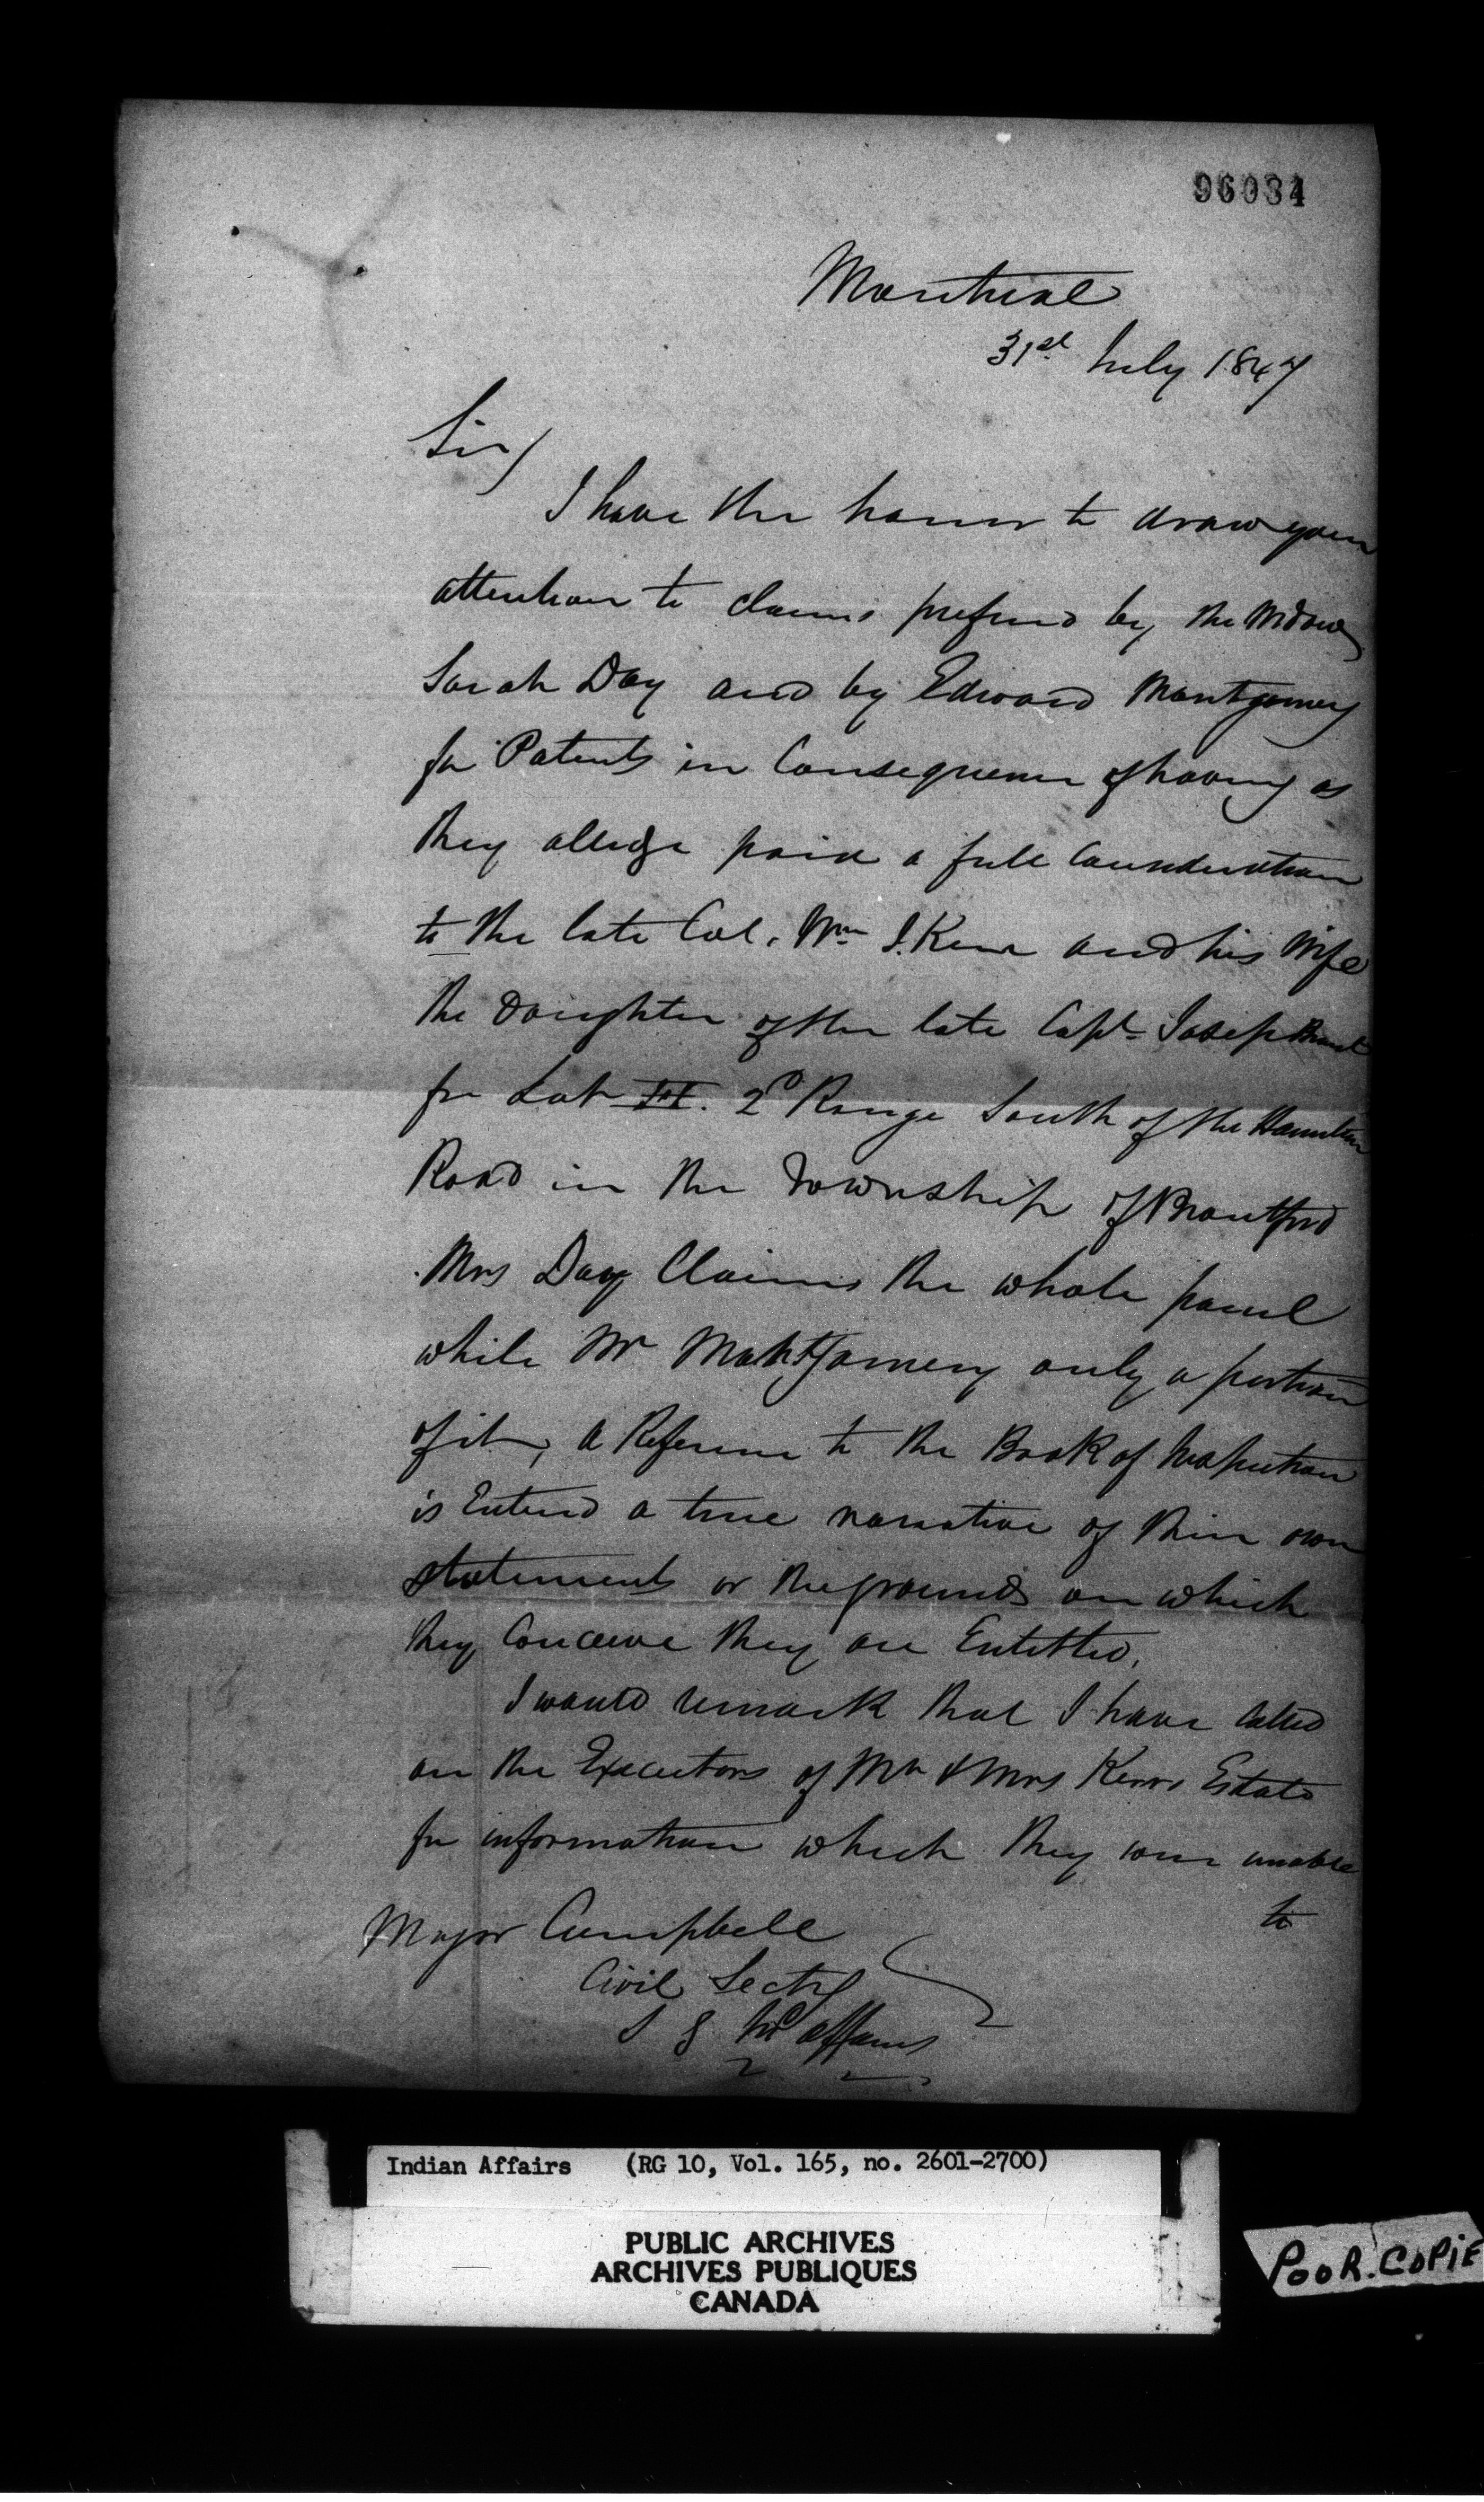 96034
Montreal
31st July 1847
Sir/
I have the honor to draw your
attention to claims prefered by the Widow
Sarah Day and by Edward Montgomery
for Patents in Consequence of having as
they alledge paid a full Consideration
to the late Col. Wm J. Kerr and his Wife
the Daughter of the late Capt. Joseph Brant
for Lot III. 2d Range South of the Hamilton
Road in the Township of Brantford
Mrs Day Claims the whole parcel
while Mr Montgomery only a portion
of it, A Reference to the Book of Inspection
is Entered a true narrative of their own
statements or the grounds on which
they Conceive they are Entitled.
I would remark that I have called
on the Executors of Mr & Mrs Kerrs Estate
for information which they were unable
to
Major Campbell
Civil Secty
S G Ind affairs
Indian Affairs (RG 10, Vol. 165, no. 2601-2700)
PUBLIC ARCHIVES
ARCHIVES PUBLIQUES
CANADA
POOR. COPIE